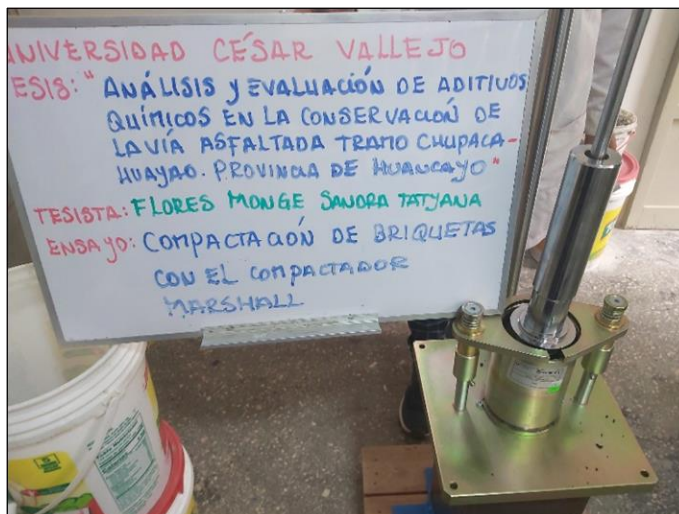 UNIVERSIDAD CÉSAR VALLEJO
ESIS: "ANÁLISIS Y EVALUACIÓN DE ADITIVOS
QUÍMICOS EN LA CONSERVACIÓN DE
LA VÍA ASFALTADA TRAMO CHUPACA-
HUAYAO. PROVINCIA DE HUANCAYO"
TESISTA: FLORES MONGE SANDRA TATYANA
ENSAYO: COMPACTACIÓN DE BRIQUETAS
CON EL COMPACTADOR
MARSHALL